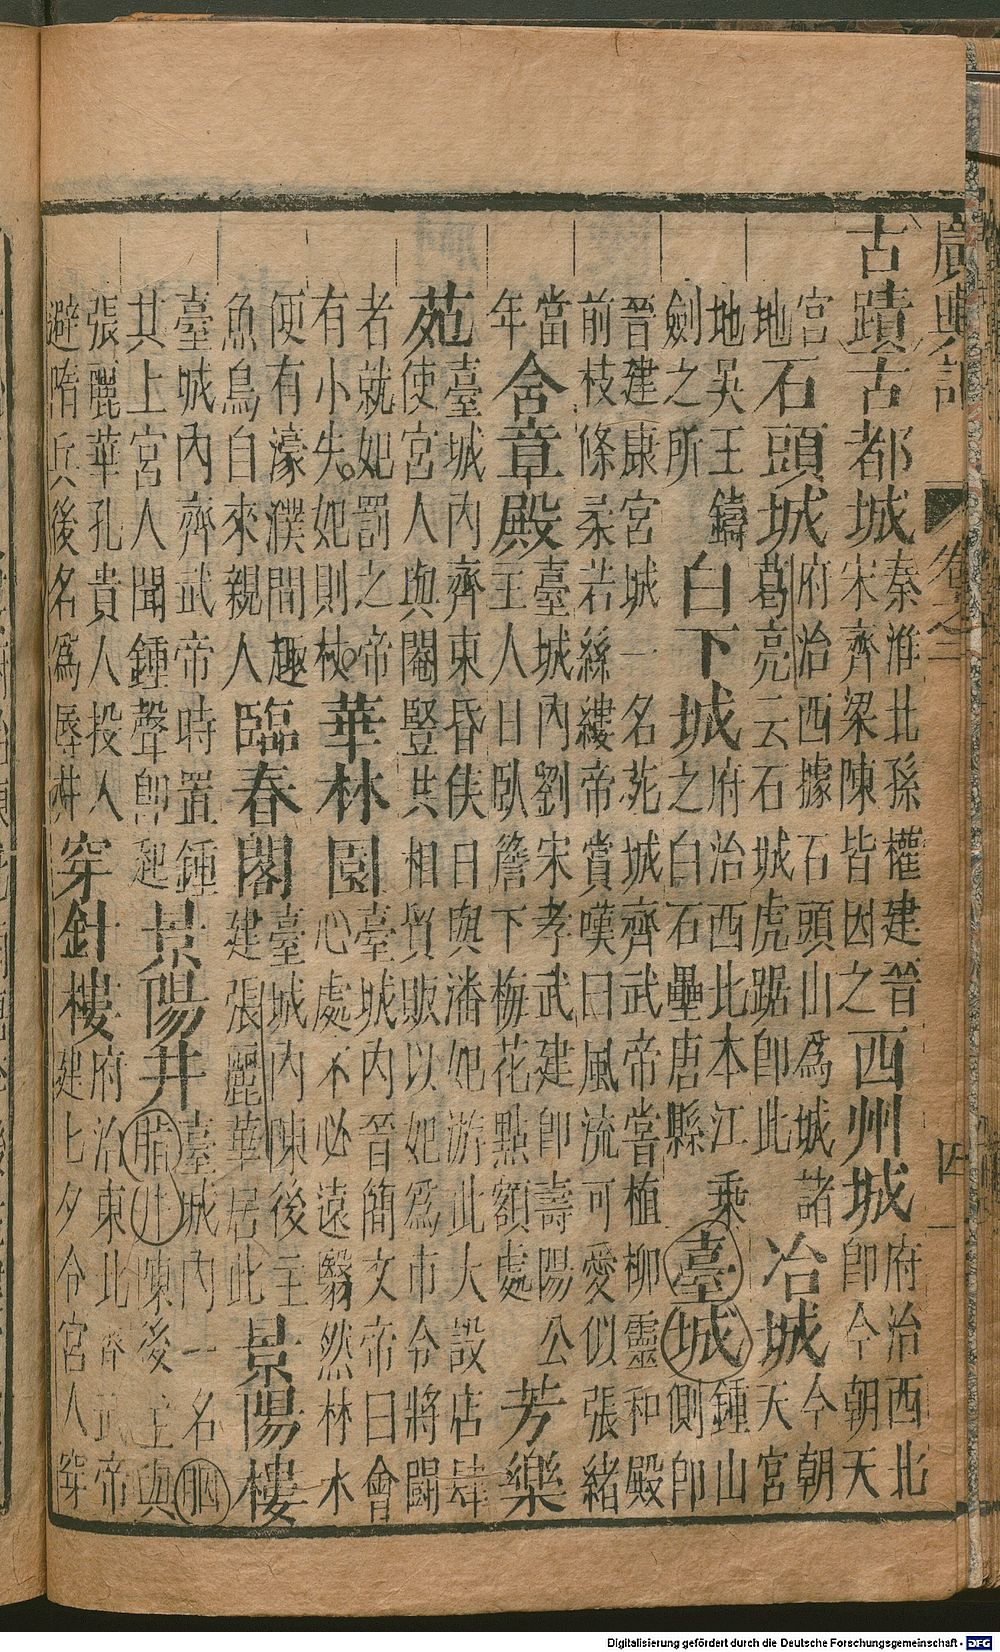 廣輿記 卷之二 四
古蹟 古都城 秦淮北孫權建晉
宋齊梁陳皆因之 西州城 府治西北
即今朝天
宮
地 石頭城 府治西據石頭山為城諸
葛亮云石城虎踞即此 冶城 今朝
天宮
地吳王鑄
劍之所 白下城 府治西北本江乘
之白石壘唐縣 臺城 鍾山
側即
晉建康宮城一名苑城齊武帝嘗植柳靈和殿
前枝條柔若絲縷帝賞嘆曰風流可愛似張緒
當
年 舍章殿 臺城內劉宋孝武建即壽陽公
主人日臥簷下梅花點額處 芳樂
苑 臺城內齊東昏侯日與潘妃游此大設店肆
使宮人與閹豎共相貿販以妃為市令將鬬
者就妃罰之帝
有小失妃則杖 華林園 臺城內晉簡文帝曰會
心處不必遠翳然林水
便有濠濮間趣
魚鳥自來親人 臨春閣 臺城內陳後主
建張麗華居此 景陽樓
臺城內齊武帝時置鍾
其上宮人聞鍾聲即起 景陽井 臺城內一名胭
脂井陳後主與
張麗華孔貴人投人
避隋兵後名為辱井 穿針樓 府治東北齊武帝
建七夕令宮人穿
Digitalisierung gefördert durch die Deutsche Forschungsgemeinschaft - DFG